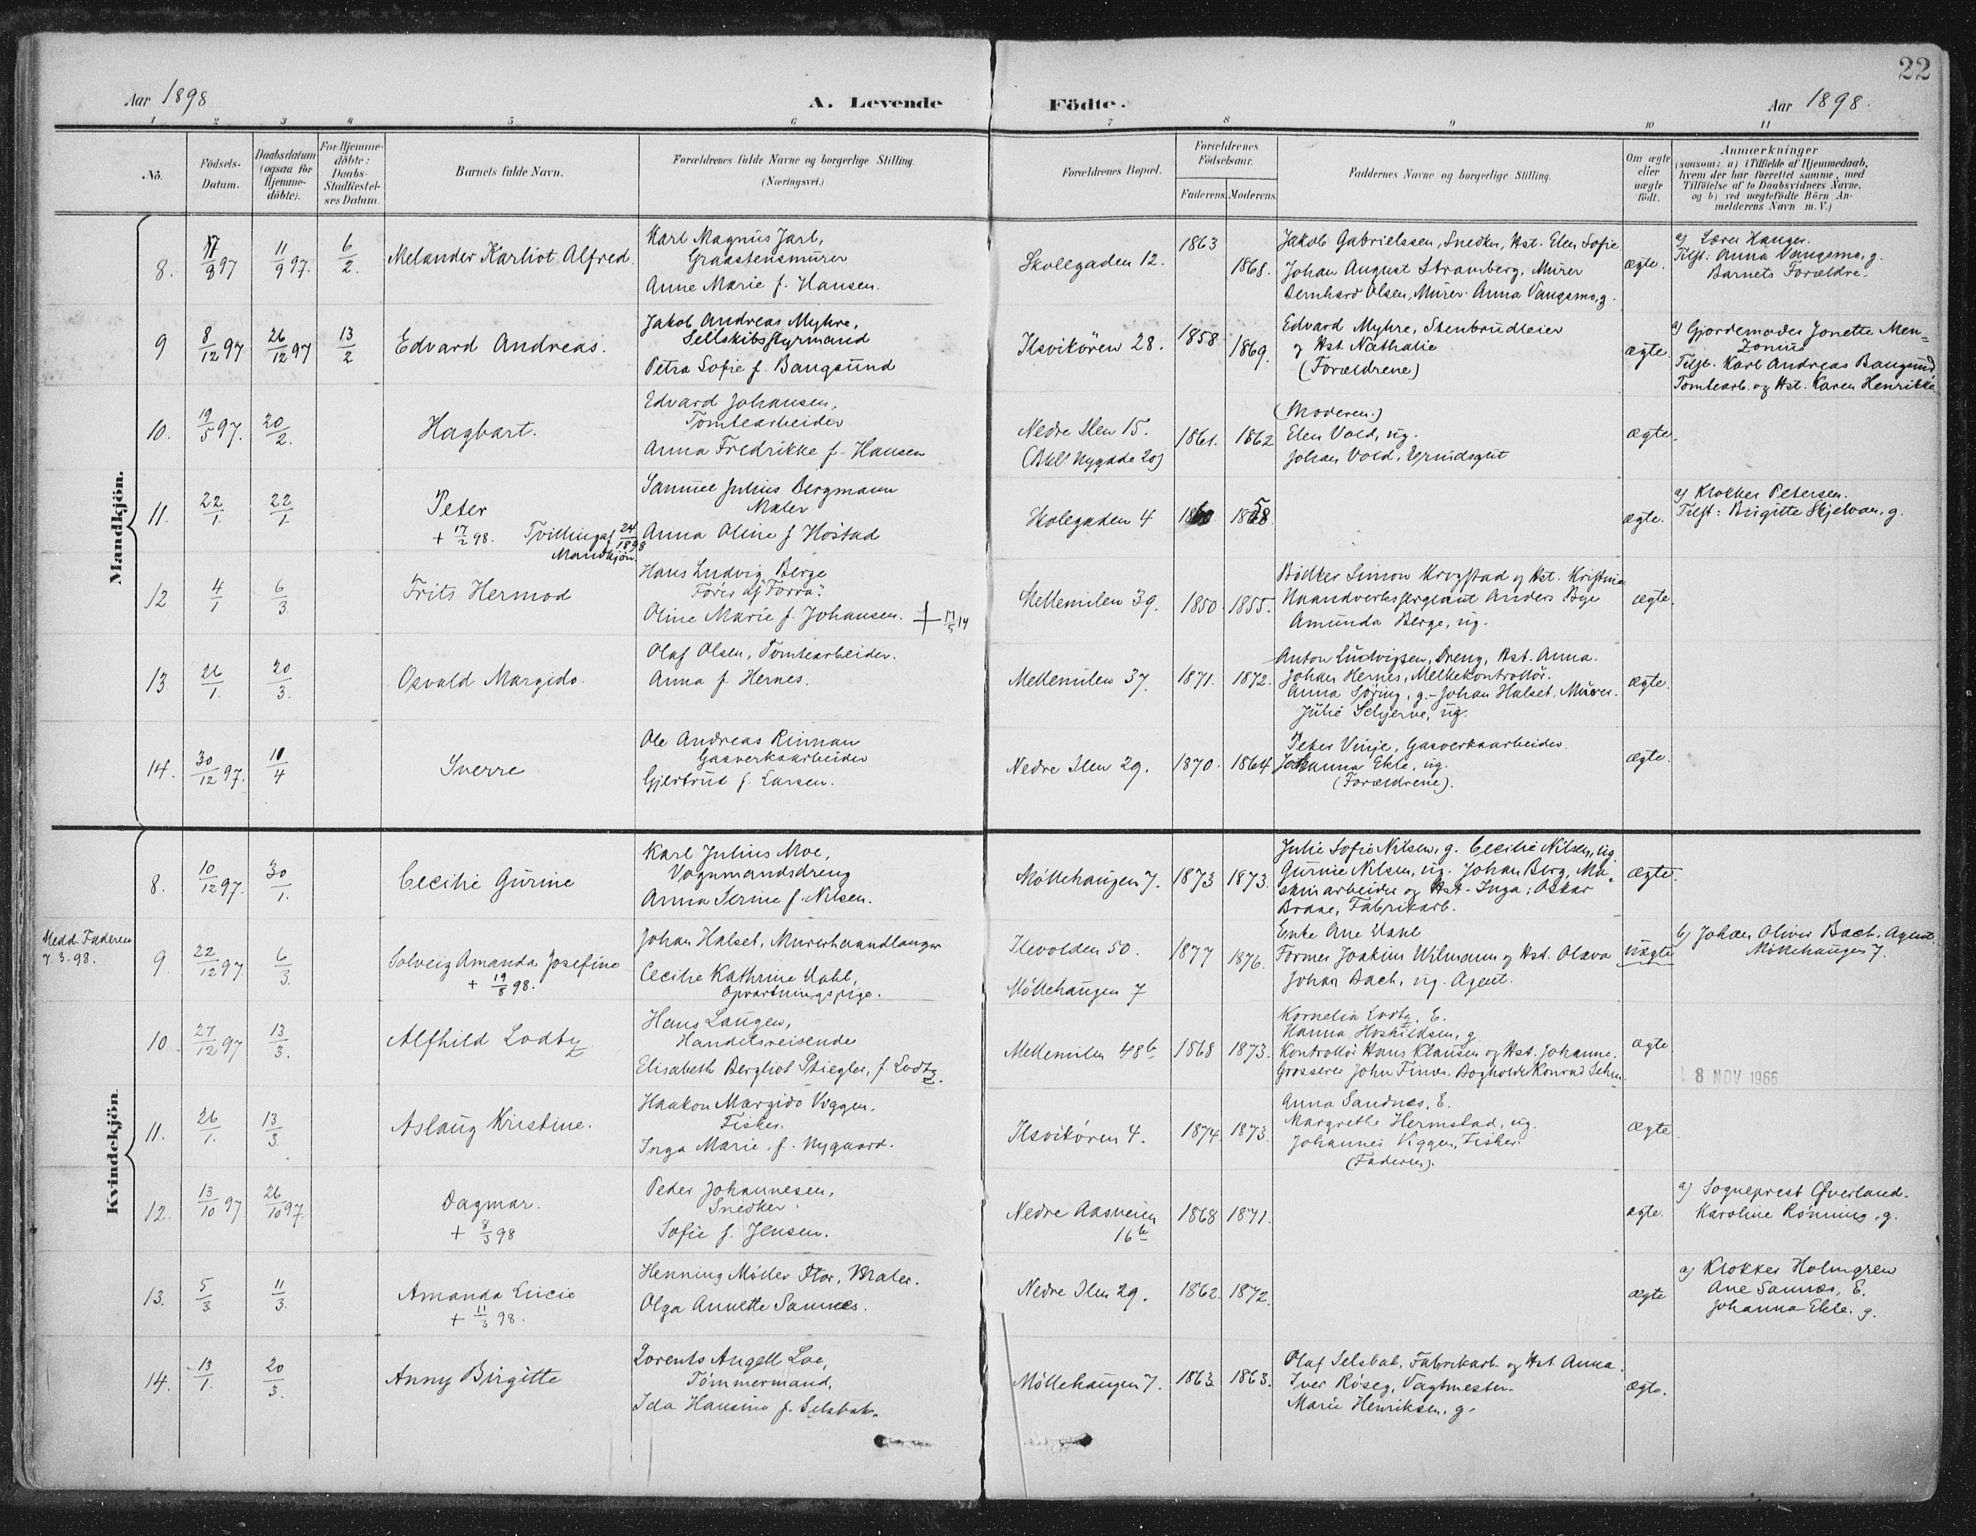 22
Aar 1898
A. Levende
Födte.
Aar 1898.
1 2 3 4 5 6 7 8 9 10 11
No.
Födsels-
Datum.
Daabsdatum
(ogsaa for
Hjemme-
döbte).
For Hjemme-
döbte:
Daabs-
Stadfæstel-
ses Datum.
Barnets fulde Navn.
Forældrenes fulde Navne og borgerlige Stilling.
(Næringsvei.)
Forældrenes Bopæl.
Forældrenes
Födselsaar.
Faderens.
Moderens.
Faddernes Navne og borgerlige Stilling.
Om ægte
eller
uægte
födt.
Anmærkninger
(saasom: a) i Tilfælde af Hjemmedaab,
hvem der har forrettet samme, med
Tilföielse af to Daabsvidners Navne,
og b) ved uægtefödte Börn An-
melderens Navn m. V.)
Mandkjön.
8. 17/8 97 11/9 97. 6/2 Melander Karliot Alfred.
Karl Magnus Jarl,
Graastensmurer
Anne Marie f. Hansen.
Skolegaden 12. 1863 1868.
Jakob Gabrielssen, Snedker, Hst. Elen Sofie
Johan August Stramberg, Murer
Bernhard Olsen, Murer. Anna Vangsmo, g.
ægte.
a) Lærer Hanger.
Tilst. Anna Vangsmo, g.
Barnets Forældre.
9 8/12 97 26/12 97 13/2 Edvard Andreas.
Jakob Andreas Myhre,
Petra Sofie f. Bangsund
Ilsvikören 28. 1858 1869.
Edvard Myhre, Stenbrudleier
og Hst. Nathalie
(Forældrene)
ægte.
a) Gjordemoder Jonette Men-
Tilst. Karl Andreas Bangsund
Tomtearb. og Hst. Karen Henrikke
10. 19/5 97. 20/2. Hagbart.
Edvard Johansen,
Tomtearbeider
Anna Fredrikke f. Hansen
Nedre Ilen 15.
1861. 1862
(Moderen.)
Elen Vold, ug.
Johan Vold, Brudsgut
ægte.
11. 22/1. 22/1. Peter
+ 17/2 98. Tvilling af 24/1898
Mandkjön.
Samuel Julius Bergmann
Maler
Anna Oline f Høstad
Skolegaden 4
ægte.
a) Klokker Petersen.
Tilst: Birgitte Skjelvan, g.
12 4/1 6/3. Frits Hermod
Hans Ludvig Berge
Fører af "Forra".
Oline Marie f. Johansen. + 17/5 14
Mellemilen 39. 1850. 1855.
Bödker Simon Krogstad og Hst. Kristina
Haandverkssergeant Anders Bye
Amunda Berge, ug.
ægte.
13 26/1. 20/3. Osvald Margido.
Olaf Olsen, Tomtearbeider.
Anna f. Hernes.
Mellemilen 37. 1871. 1872.
Anton Ludvigsen, Dreng, Hst. Anna.
Johan Hernes, Melkekontrollör.
Anna Söring, g. - Johan Halset, Murer.
Julie Schjerve, ug.
ægte.
14. 30/12 97. 10/4 Sverre
Ole Andreas Rinnan
Gasverksarbeider
Gjertrud f. Larsen.
Nedre Ilen 29. 1870. 1864.
Peter Vinje, Gasverksarbeider.
Johanna Ekle, ug.
(Forældrene).
ægte.
Kvindekjön.
8. 10/12 97. 30/1. Cecilie Gurine
Karl Julius Moe,
Vognmandsdreng
Anna Serine f. Nilsen.
Møllehaugen 7. 1873 1873.
Julie Sofie Nilsen, g. Cecilie Nilsen, ug
Gurine Nilsen, ug. Johan Berg, Ma-
skinarbeider og Hst. Inga; Oskar
Braae, Fabrikarb.
ægte.
Medd. Faderen
7.3.98.
9. 22/12 97 6/3. Solveig Amanda Josefine
+ 19/8 98.
Johan Halset, Murerhaandlanger
Cecilie Kathrine Dahl,
Opvartningspige.
Ilevolden 50.
Møllehaugen 7
1877 1876.
Enke Ane Dahl
Former Joakim Wilmann og Hst. Olava
Johan Bach, ug. Agent.
uægte
b) Johan Oliver Bach, Agent,
Møllehaugen 7.
10. 27/12 97 13/3. Alfhild Lodtz
Hans Laugen,
Handelsreisende
Elisabeth Bergliot Stiegler, f. Lodtz.
Mellemilen 48b. 1868 1873.
Kornelia Lodtz, E.
Hanna Hoshildsen, g.
Kontrollör Hans Klausen og Hst. Johanne.
Grosserer John Finne. Bogholder Konrad Schm.
ægte
8 NOV 1966
11. 26/1. 13/3. Aslaug Kristine.
Haakon Margido Viggen,
Fisker.
Inga Marie f. Nygaard.
Ilsvikören 4. 1874. 1873.
Anna Sandnes, E.
Margrethe Hermstad, ug.
Johannes Viggen, Fisker.
(Faderen).
ægte.
12. 13/10 97. 26/10 97. Dagmar.
+ 8/3 98
Peder Johannesen,
Snedker.
Sofie f. Jensen.
Nedre Aasveien
16b
1868 1871.
ægte.
a) Sogneprest Øverland.
Karoline Rønning, g.
13. 5/3 11/3. Amanda Lucie
+ 11/3 98.
Henning Möller Flor, Maler.
Olga Annette Sannes.
Nedre Ilen 29. 1862. 1872.
ægte
a) Klokker Holmgren
Ane Sannæs, E.
Johanna Ekle. g.
14. 13/1. 20/3. Anny Birgitte
Lorents Angell Loe,
Tömmermand,
Ida Hansine f. Selsbak.
Møllehaugen 7. 1863. 1863.
Olaf Selsbak, Fabrikarb. og Hst. Anna.
Iver Röseg, Vagtmester.
Marie Henriksen, g.
ægte.